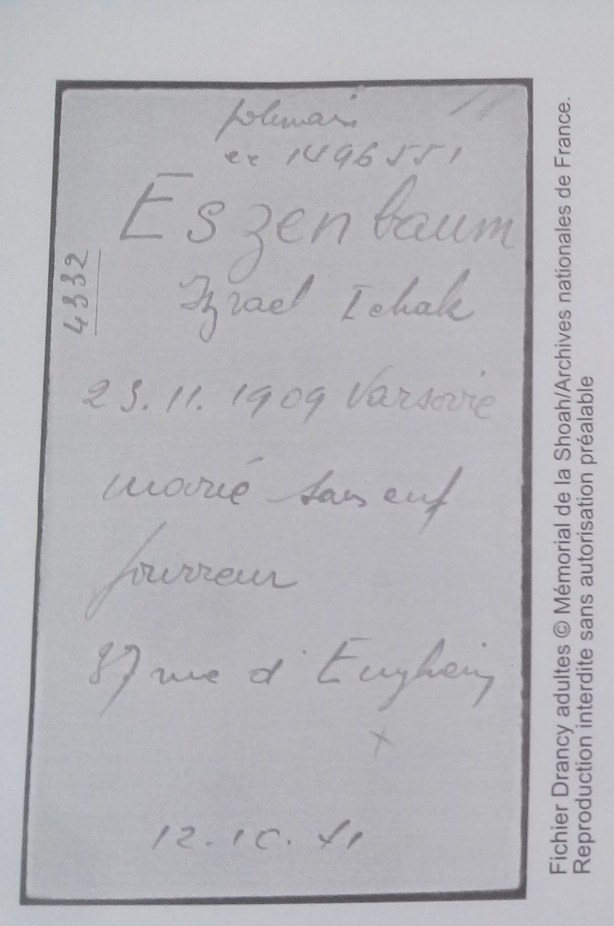 polonais
ce 1496551
Eszenbaum
Izrael Ichak
4332
23.11.1909 Varsovie
marié sans enf
fourreur
37 rue d'Enghein
x
12.10.41
Fichier Drancy adultes © Mémorial de la Shoah/Archives nationales de France.
Reproduction interdite sans autorisation préalable